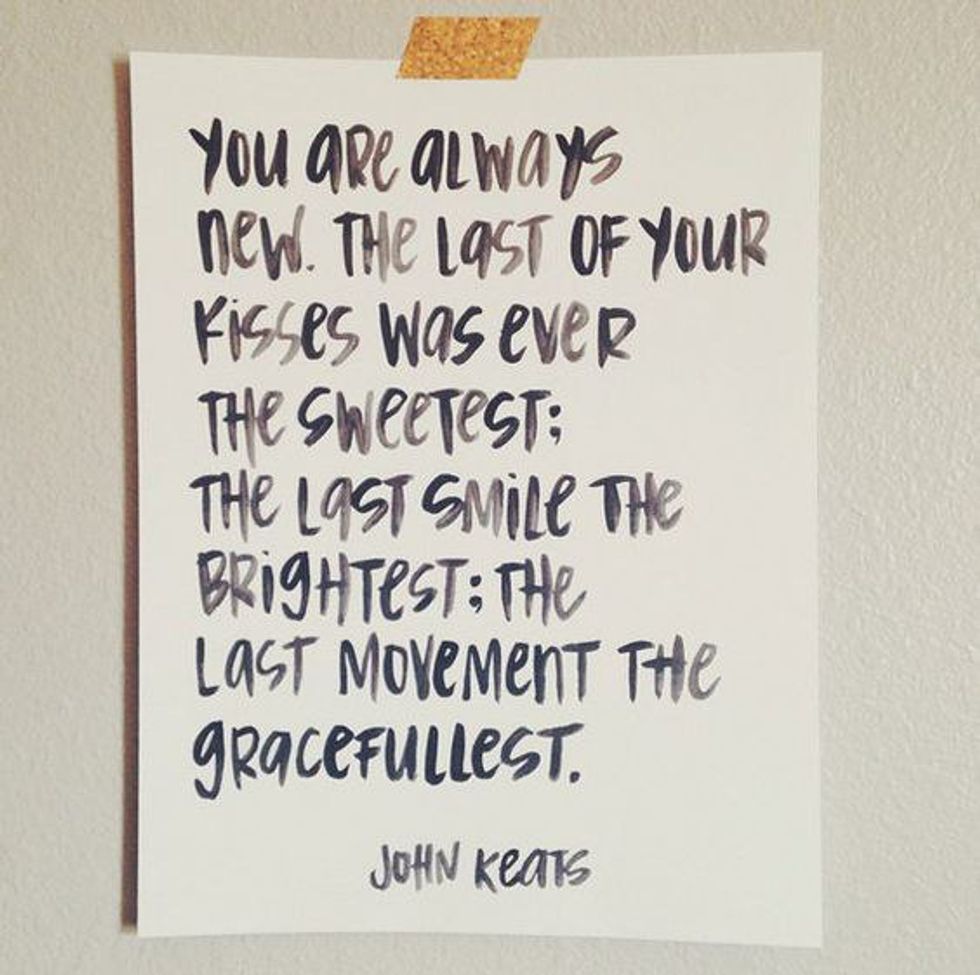 YOU ARE ALWAYS
NEW. THE LAST OF YOUR
KISSES WAS EVER
THE SWEETEST;
THE LAST SMILE THE
BRIGHTEST; THE
LAST MOVEMENT THE
GRACEFULLEST.
JOHN KEATS